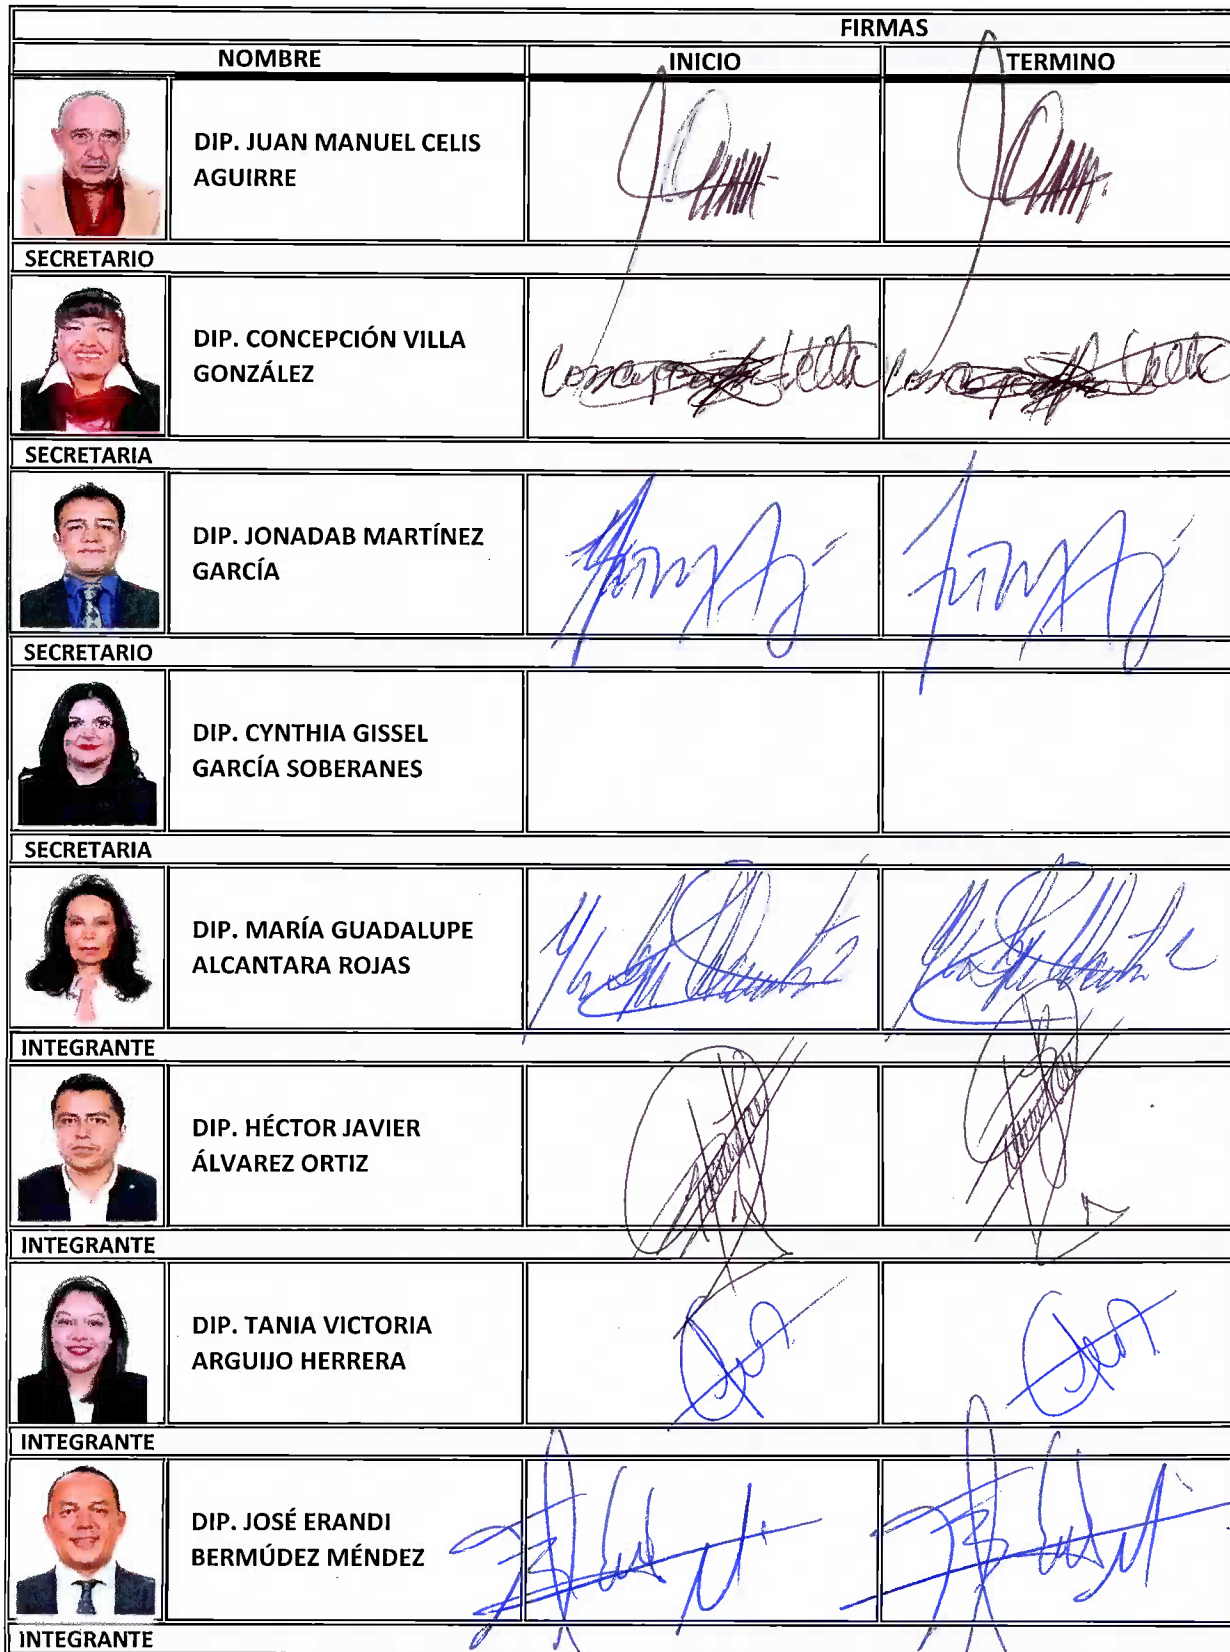 FIRMAS
NOMBRE INICIO TERMINO
DIP. JUAN MANUEL CELIS
AGUIRRE
SECRETARIO
DIP. CONCEPCIÓN VILLA
GONZÁLEZ
Concepción Villa Concepción Villa
SECRETARIA
DIP. JONADAB MARTÍNEZ
GARCÍA
SECRETARIO
DIP. CYNTHIA GISSEL
GARCÍA SOBERANES
SECRETARIA
DIP. MARÍA GUADALUPE
ALCANTARA ROJAS
INTEGRANTE
DIP. HÉCTOR JAVIER
ÁLVAREZ ORTIZ
INTEGRANTE
DIP. TANIA VICTORIA
ARGUIJO HERRERA
INTEGRANTE
DIP. JOSÉ ERANDI
BERMÚDEZ MÉNDEZ
INTEGRANTE